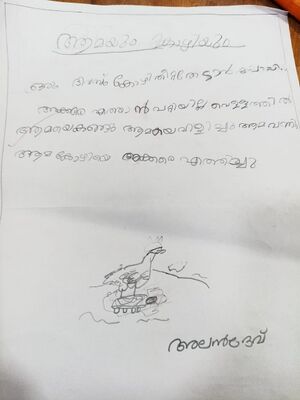 ആമയും കോഴിയും
ഒരു ദിവസം കോഴി തീറ്റ തേടാൻ പോയി..
അക്കരെ എത്താൻ പറ്റിയില്ല വെള്ളത്തിൽ
ആമയെകണ്ടു ആമയെവിളിച്ചു ആമ വന്നു
ആമ കോഴിയെ അക്കരെ എത്തിച്ചു
അലൻദേവ്